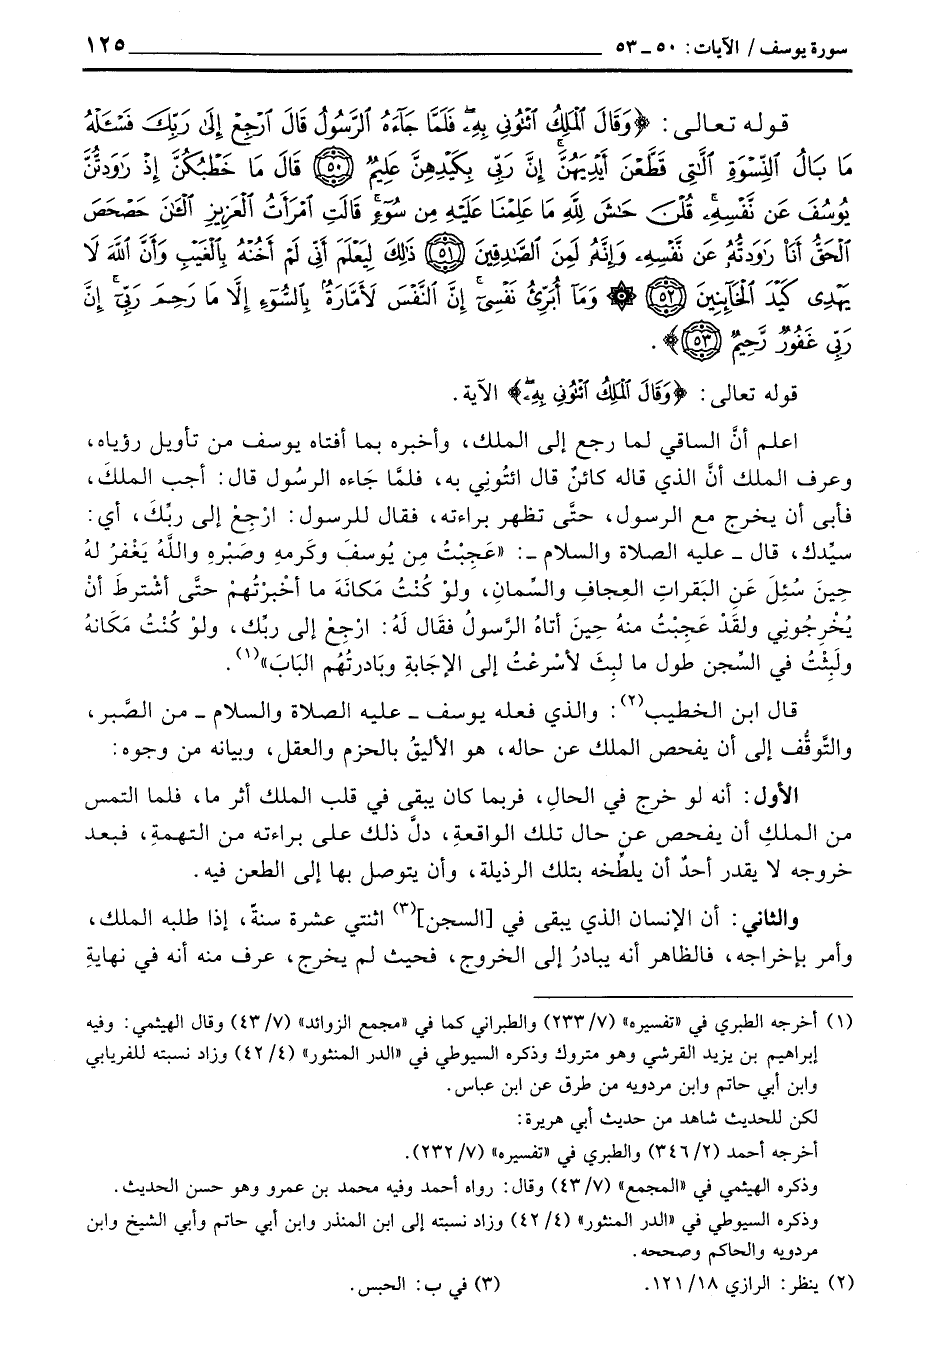 سورة يوسف / الآيات: ٥٠ ـ ٥٣ ١٢٥
قوله تعالى: ﴿وَقَالَ ٱلْمَلِكُ ٱئْتُونِي بِهِۦۖ فَلَمَّا جَآءَهُ ٱلرَّسُولُ قَالَ ٱرْجِعْ إِلَىٰ رَبِّكَ فَسْـَٔلْهُ
مَا بَالُ ٱلنِّسْوَةِ ٱلَّـٰتِي قَطَّعْنَ أَيْدِيَهُنَّۚ إِنَّ رَبِّي بِكَيْدِهِنَّ عَلِيمٌ ٥٠ قَالَ مَا خَطْبُكُنَّ إِذْ رَٰوَدتُّنَّ
يُوسُفَ عَن نَّفْسِهِۦۚ قُلْنَ حَـٰشَ لِلَّهِ مَا عَلِمْنَا عَلَيْهِ مِن سُوٓءٍۚ قَالَتِ ٱمْرَأَتُ ٱلْعَزِيزِ ٱلْـَٰٔنَ حَصْحَصَ
ٱلْحَقُّ أَنَا۠ رَٰوَدتُّهُ عَن نَّفْسِهِۦ وَإِنَّهُ لَمِنَ ٱلصَّـٰدِقِينَ ٥١ ذَٰلِكَ لِيَعْلَمَ أَنِّي لَمْ أَخُنْهُ بِٱلْغَيْبِ وَأَنَّ ٱللَّهَ لَا
يَهْدِي كَيْدَ ٱلْخَآئِنِينَ ٥٢ ۞ وَمَآ أُبَرِّئُ نَفْسِيٓۚ إِنَّ ٱلنَّفْسَ لَأَمَّارَةٌۢ بِٱلسُّوٓءِ إِلَّا مَا رَحِمَ رَبِّيٓۚ إِنَّ
رَبِّي غَفُورٌ رَّحِيمٌ ٥٣﴾.
قوله تعالى: ﴿وَقَالَ ٱلْمَلِكُ ٱئْتُونِي بِهِۦۖ﴾ الآية.
اعلم أنَّ الساقي لما رجع إلى الملك، وأخبره بما أفتاه يوسف من تأويل رؤياه،
وعرف الملك أنَّ الذي قاله كائنٌ قال ائتُونِي به، فلمَّا جَاءه الرسُول قال: أجب الملكَ،
فأبى أن يخرج مع الرسول، حتَّى تظهر براءته، فقال للرسول: ارْجِعْ إلى ربِّكَ، أي:
سيِّدك، قال ـ عليه الصلاة والسلام ـ: «عَجِبْتُ مِن يُوسفَ وكَرمهِ وصَبْرِه واللَّهُ يَغْفرُ لهُ
حِينَ سُئِلَ عَنِ البَقراتِ العِجافِ والسِّمانِ، ولوْ كُنْتُ مَكانَهَ ما أخْبرْتُهمْ حتَّى أشْترطَ أنْ
يُخْرجُونِي ولقَدْ عَجِبْتُ منهُ حِينَ أتاهُ الرَّسولُ فقَال لَهُ: ارجِعْ إلى ربِّك، ولوْ كُنْتُ مَكَانهُ
ولَبِثْتُ في السِّجن طول ما لبِثَ لأسْرعْتُ إلى الإجَابةِ وبَادرتُهُم البَابَ»(١).
قال ابن الخطيب(٢): والذي فعله يوسف ـ عليه الصلاة والسلام ـ من الصَّبر،
والتَّوقُّف إلى أن يفحص الملك عن حاله، هو الأليقُ بالحزم والعقل، وبيانه من وجوه:
الأول: أنه لو خرج في الحالِ، فربما كان يبقى في قلب الملك أثر ما، فلما التمس
من الملكِ أن يفحص عن حال تلك الواقعةِ، دلَّ ذلك على براءته من التهمةِ، فبعد
خروجه لا يقدر أحدٌ أن يلطِّخه بتلك الرذيلة، وأن يتوصل بها إلى الطعن فيه.
والثاني: أن الإنسان الذي يبقى في [السجن](٣) اثنتي عشرة سنةً، إذا طلبه الملك،
وأمر بإخراجه، فالظاهر أنه يبادرُ إلى الخروج، فحيث لم يخرج، عرف منه أنه في نهايةِ
(١) أخرجه الطبري في «تفسيره» (٢٣٣/٧) والطبراني كما في «مجمع الزوائد» (٤٣/٧) وقال الهيثمي: وفيه
إبراهيم بن يزيد القرشي وهو متروك وذكره السيوطي في «الدر المنثور» (٤٢/٤) وزاد نسبته للفريابي
وابن أبي حاتم وابن مردويه من طرق عن ابن عباس.
لكن للحديث شاهد من حديث أبي هريرة:
أخرجه أحمد (٣٤٦/٢) والطبري في «تفسيره» (٢٣٢/٧).
وذكره الهيثمي في «المجمع» (٤٣/٧) وقال: رواه أحمد وفيه محمد بن عمرو وهو حسن الحديث.
وذكره السيوطي في «الدر المنثور» (٤٢/٤) وزاد نسبته إلى ابن المنذر وابن أبي حاتم وأبي الشيخ وابن
مردويه والحاكم وصححه.
(٢) ينظر: الرازي ١٢١/١٨. (٣) في ب: الحبس.